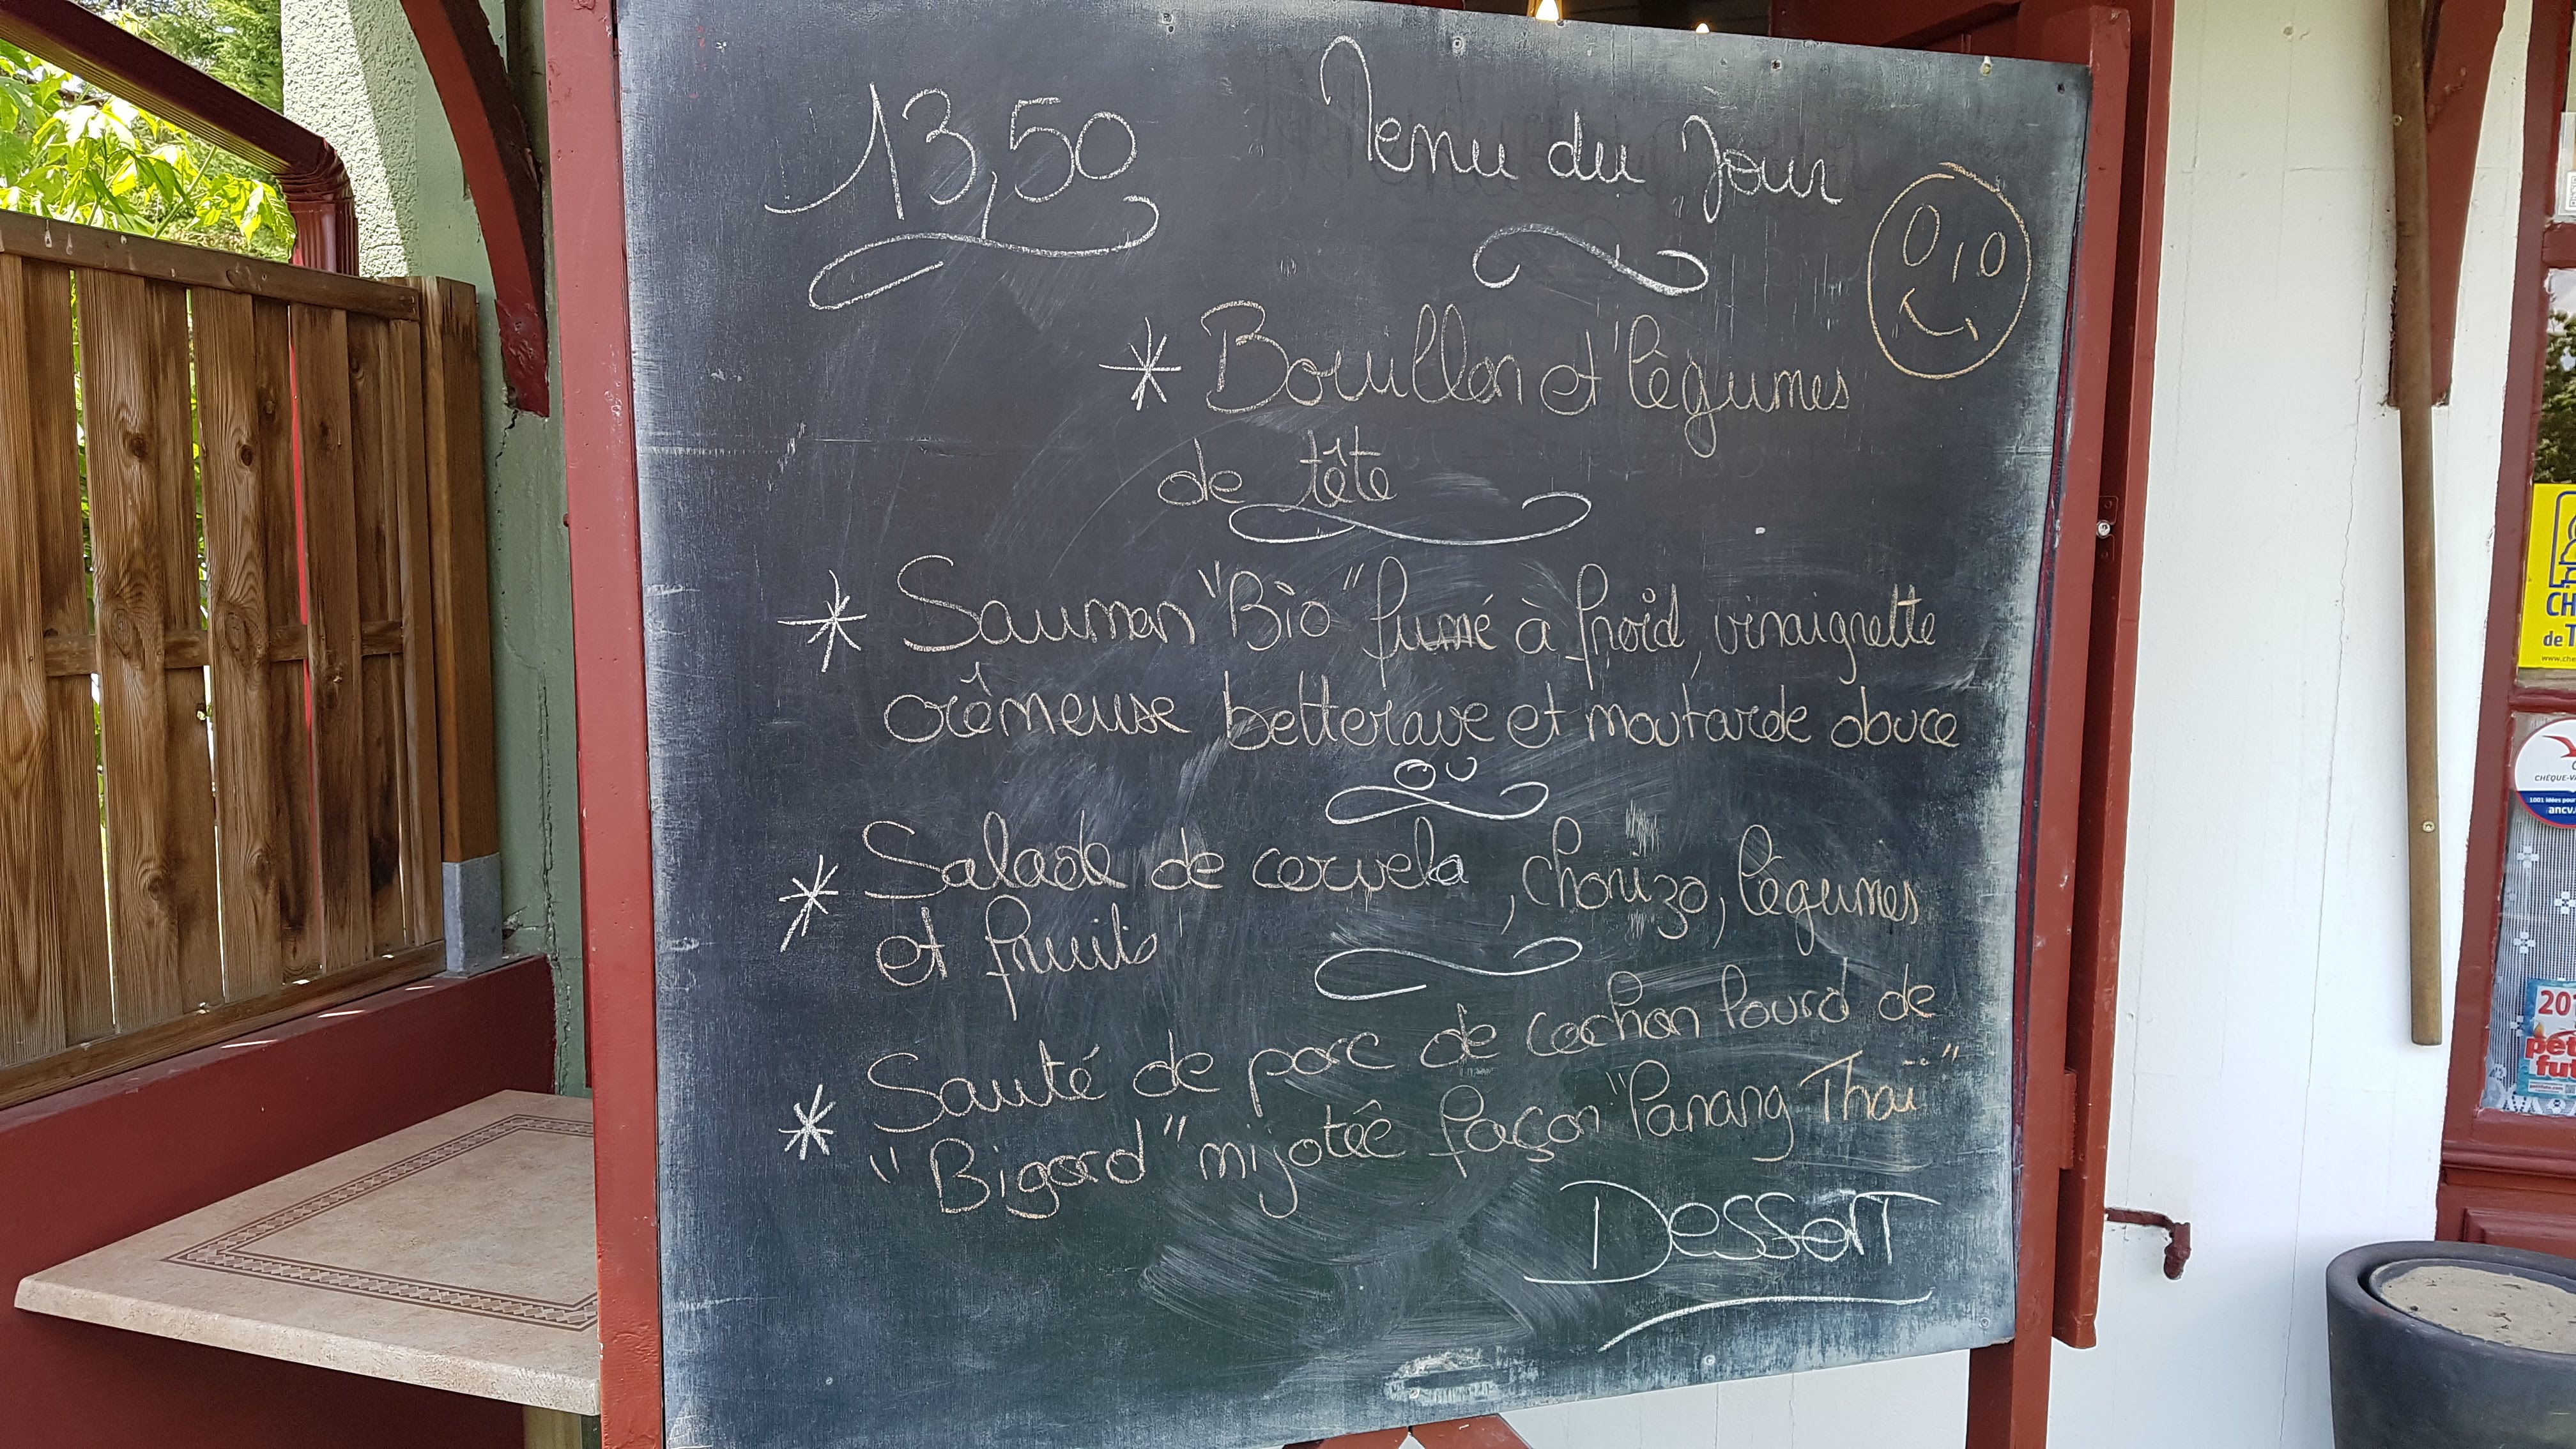 13,50
Menu du Jour
* Bouillon et légumes
de tête
* Saumon "Bio" fumé à froid, vinaigrette
crêmeuse betterave et moutarde douce
ou
* Salade de cervela, chorizo, légumes
et fruits
* Sauté de porc de cochon lourd de
"Bigard" mijotée façon "Panang Thaï"
Dessert
CH
de T
www.che
CHÈQUE-VA
1001 idées pour
ancv.
20
pet
fut